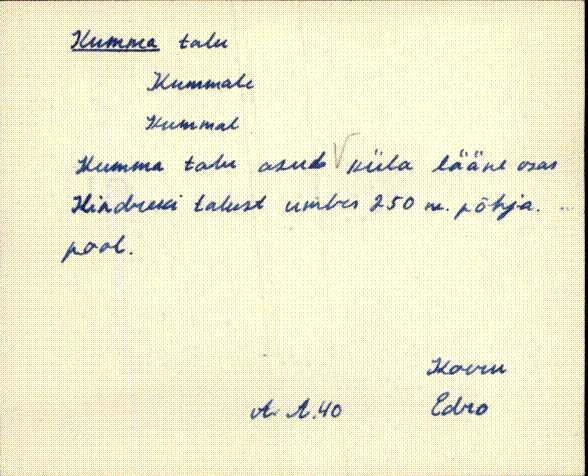 Kumma talu
Kummale
Kummal
Kumma talu asub küla lääne osas
Hindreki talust umbes 250 m. põhja.
pool.
Kovru
A. A. 40 Edro